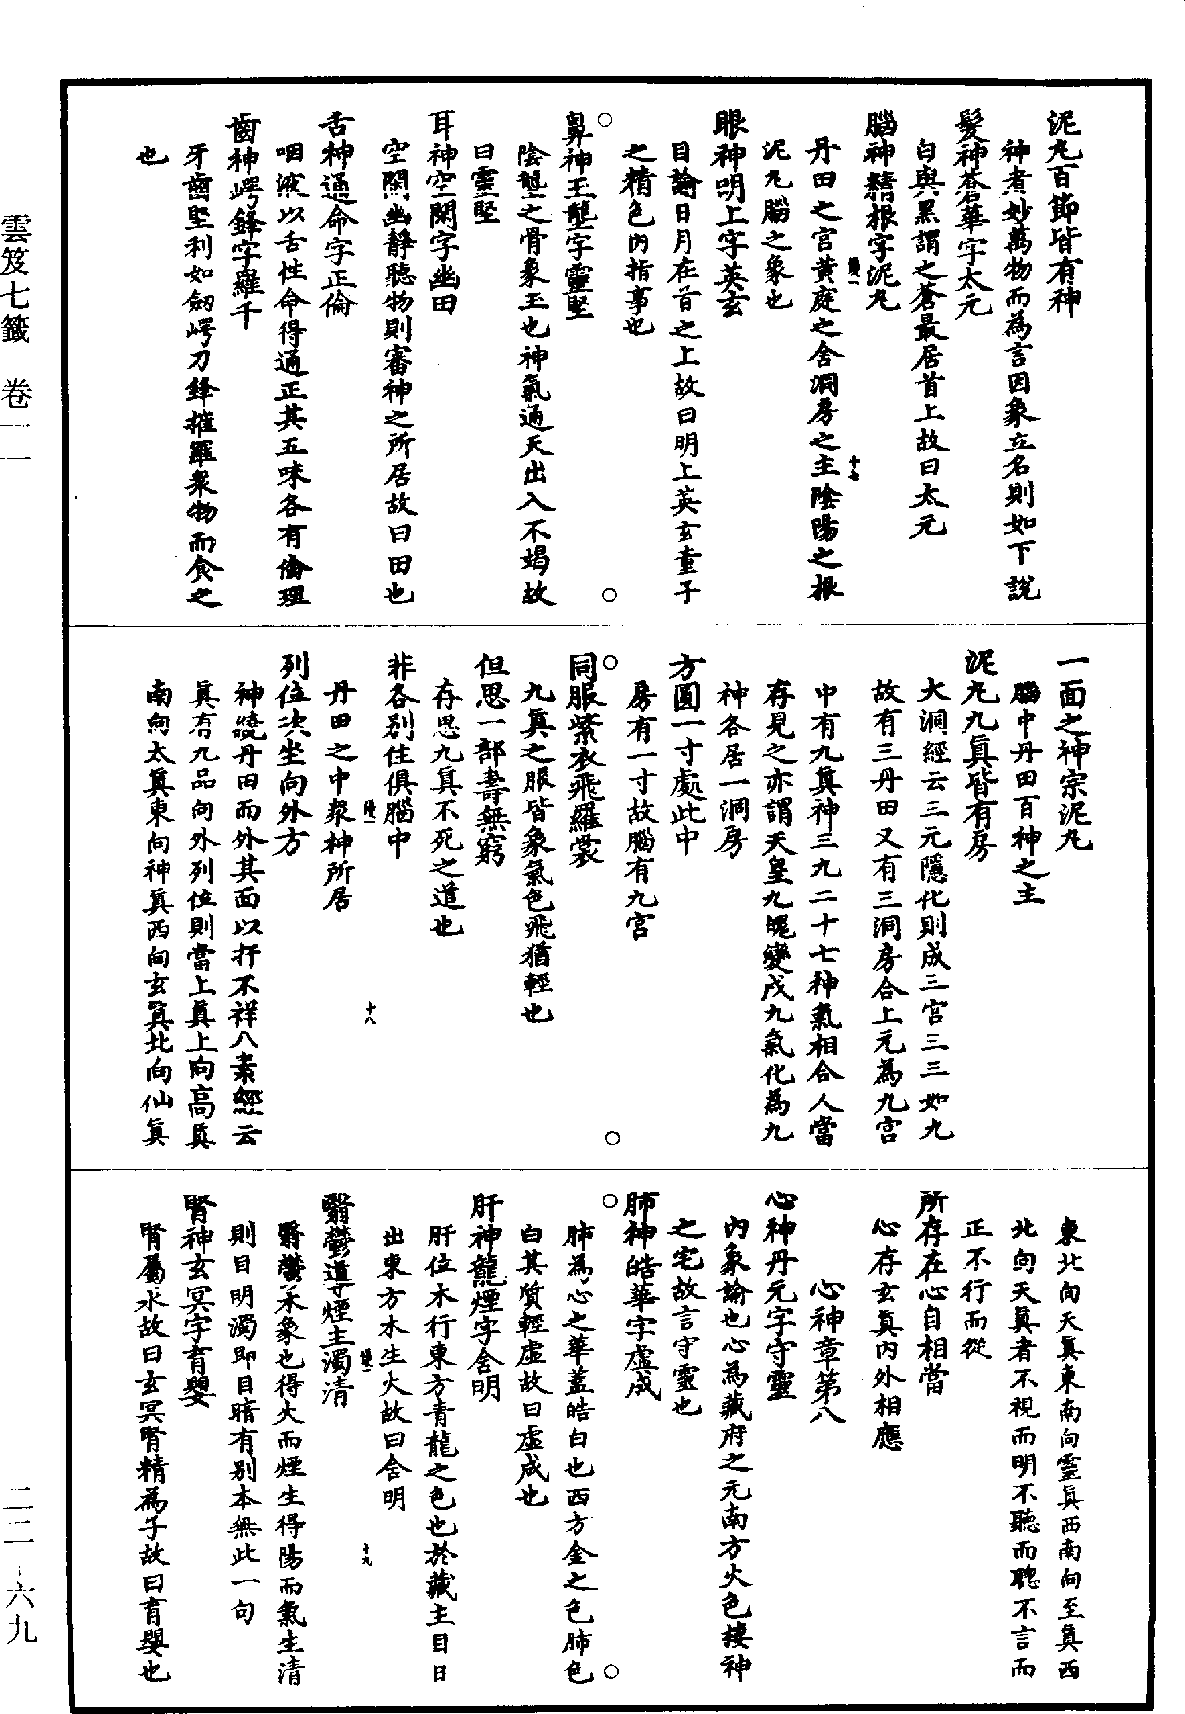 泥丸百節皆有神
神者妙萬物而為言因象立名則如下說
髮神蒼華字太元
白與黑謂之蒼最居首上故曰太元
腦神精根字泥丸
丹田之宮黃庭之舍洞房之主陰陽之根
泥丸腦之象也
眼神明上字英玄
目諭日月在首之上故曰明上英玄童子
之精色內指事也
鼻神玉壟字靈堅
隂壟之骨象玉也神氣通天出入不竭故
曰靈堅
耳神空閑字幽田
空閑幽靜聽物則審神之所居故曰田也
舌神通命字正倫
咽液以舌性命得通正其五味各有倫理
齒神崿鋒字羅千
牙齒堅利如劒崿刀鋒摧羅衆物而食之
也
一面之神宗泥丸
腦中丹田百神之主
泥丸九真皆有房
大洞經云三元隱化則成三宮三三如九
故有三丹田又有三洞房合上元為九宮
中有九真神三九二十七神氣相合人當
存見之亦謂天皇九魄變戊九氣化為九
神各居一洞房
方圓一寸處此中
房有一寸故腦有九宮
同服紫衣飛羅裳
九真之服皆象氣色飛猶輕也
但思一部壽無窮
存思九真不死之道也
非各別住俱腦中
丹田之中衆神所居
列位次坐向外方
神統丹田而外其面以扞不祥八素經云
真有九品向外列位則當上真上向高真
南向太真東向神真西向玄真北向仙真
東北向天真東南向靈真西南向至真西
北向天真者不視而明不聽而聰不言而
正不行而從
所存在心自相當
心存玄真內外相應
心神章第八
心神丹元字守靈
內象諭也心為藏府之元南方火色棲神
之宅故言守靈也
肺神皓華字虛成
肺為心之華蓋皓白也西方金之色肺色
白其質輕虛故曰虛成也
肝神龍煙字含明
肝位木行東方青龍之色也於藏主目日
出東方木生火故曰含明
翳鬱導煙主濁清
翳鬱木象也得火而煙生得陽而氣生清
則目明濁即目暗有別本無此一句
腎神玄冥字育嬰
腎屬水故曰玄冥腎精為子故曰育嬰也
十七
十八
十九
雲笈七籤 卷一一
二二－六九